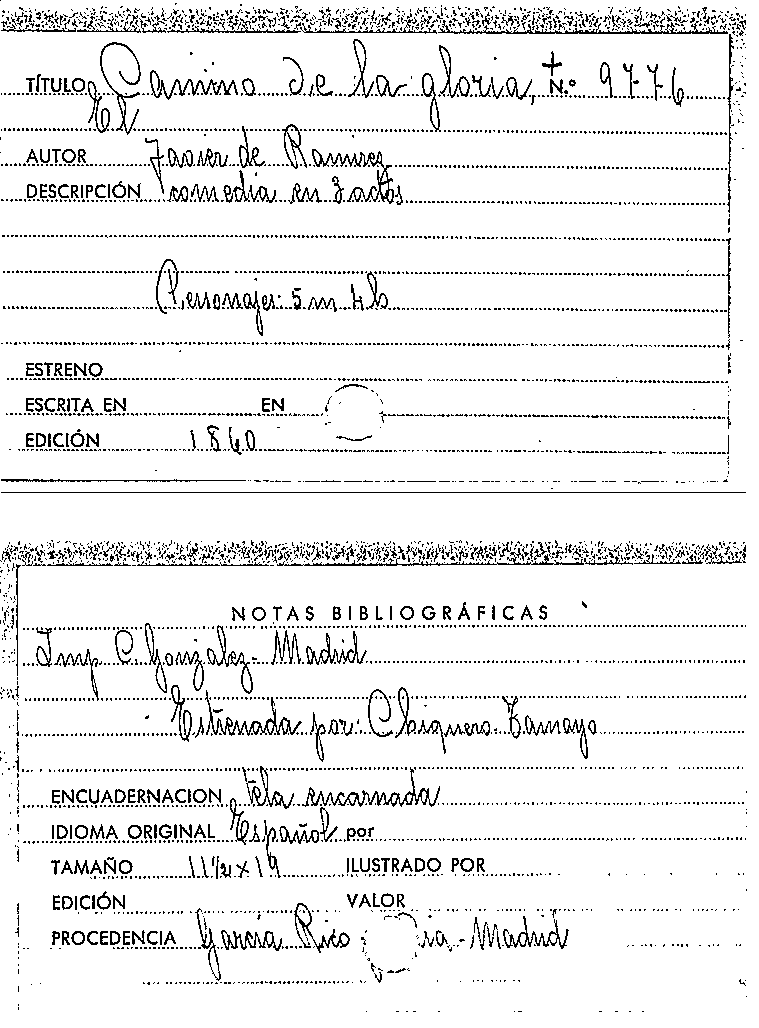 TÍTULO Camino de la gloria, N.º 9776
El
AUTOR Javier de Ramirez
DESCRIPCIÓN comedia en 3 actos
Personajes: 5 m 4 h
ESTRENO
ESCRITA EN EN
EDICIÓN 1860
NOTAS BIBLIOGRÁFICAS
Imp C. Gonzalez - Madrid
Estrenada por: Chiquero - Tamayo
ENCUADERNACION tela encarnada
IDIOMA ORIGINAL Español por
TAMAÑO 11½ x 19 ILUSTRADO POR
EDICIÓN VALOR
PROCEDENCIA García Rico ia - Madrid